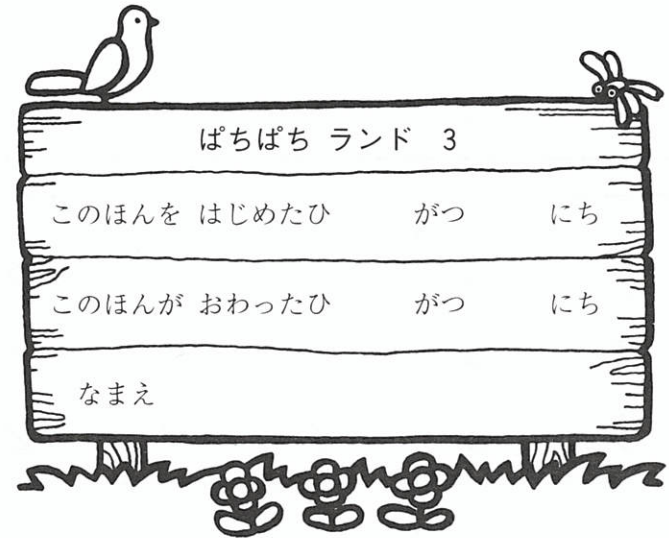 ぱちぱち ランド 3
このほんを はじめたひ がつ にち
このほんが おわったひ がつ にち
なまえ